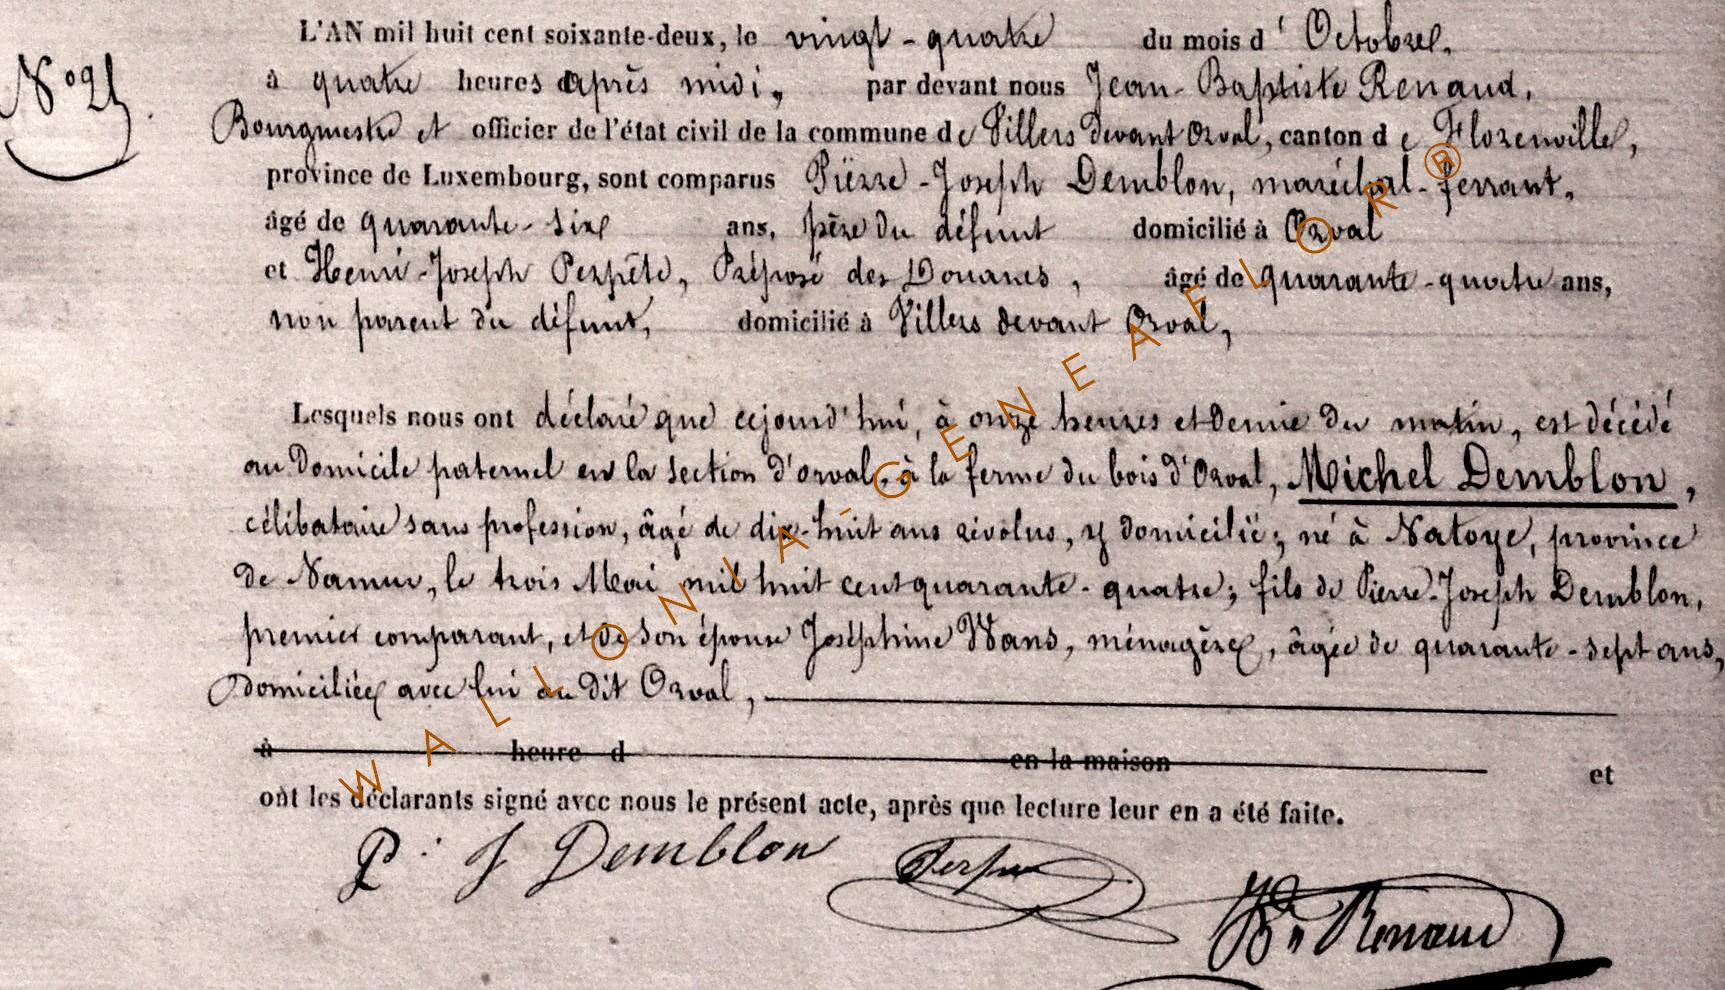 L'AN mil huit cent soixante-deux, le vingt-quatre du mois d' Octobre,
N° 21
à quatre heures après midi, par devant nous Jean-Baptiste Renaud,
Bourgmestre et officier de l'état civil de la commune de Villers devant Orval, canton de Florenville,
province de Luxembourg, sont comparus Pierre-Joseph Demblon, maréchal-ferrant,
âgé de quarante-six ans, père du défunt domicilié à Orval
et Henri-Joseph Perpète, Préposé des Douanes, âgé de quarante-quatre ans,
non parent du défunt, domicilié à Villers devant Orval,
Lesquels nous ont déclaré que cejourd'hui, à onze heures et demie du matin, est décédé
au Domicile paternel en la section d'orval, à la ferme du bois d'Orval, Michel Demblon,
célibataire sans profession, âgé de dix-huit ans révolus, y domicilié; né à Natoye, province
de Namur, le trois Mai mil huit cent quarante-quatre; fils de Pierre-Joseph Demblon,
premier comparant, et de son épouse Joséphine Wans, ménagère, âgée de quarante-sept ans,
domiciliée avec lui au dit Orval,
à heure d en la maison et
ont les déclarants signé avec nous le présent acte, après que lecture leur en a été faite.
P. J Demblon
Renaud
WALLONIA-GENEAFLOR®